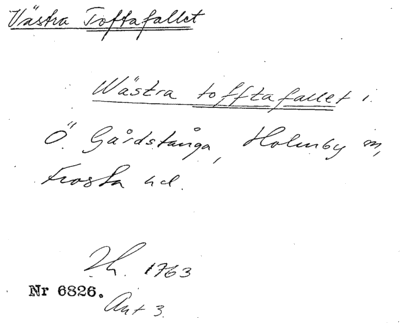 Västra Toftafallet
Wästra tofftafallet i
Ö. Gårdstånga, Holmby m,
Frosta hd.
Lh. 1763
Nr 6826.
Akt 3.